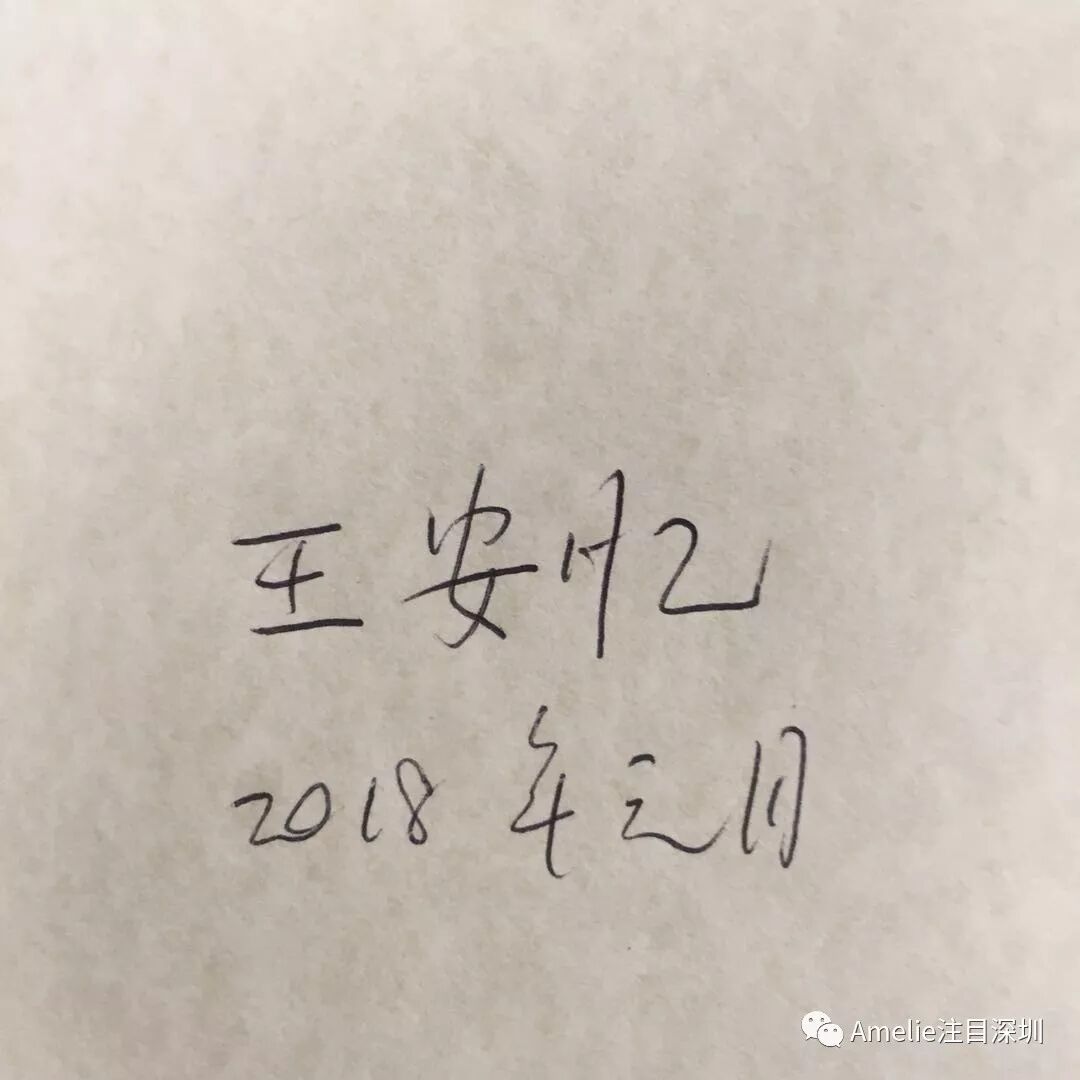 王安忆
2018年元月
Amelie注目深圳